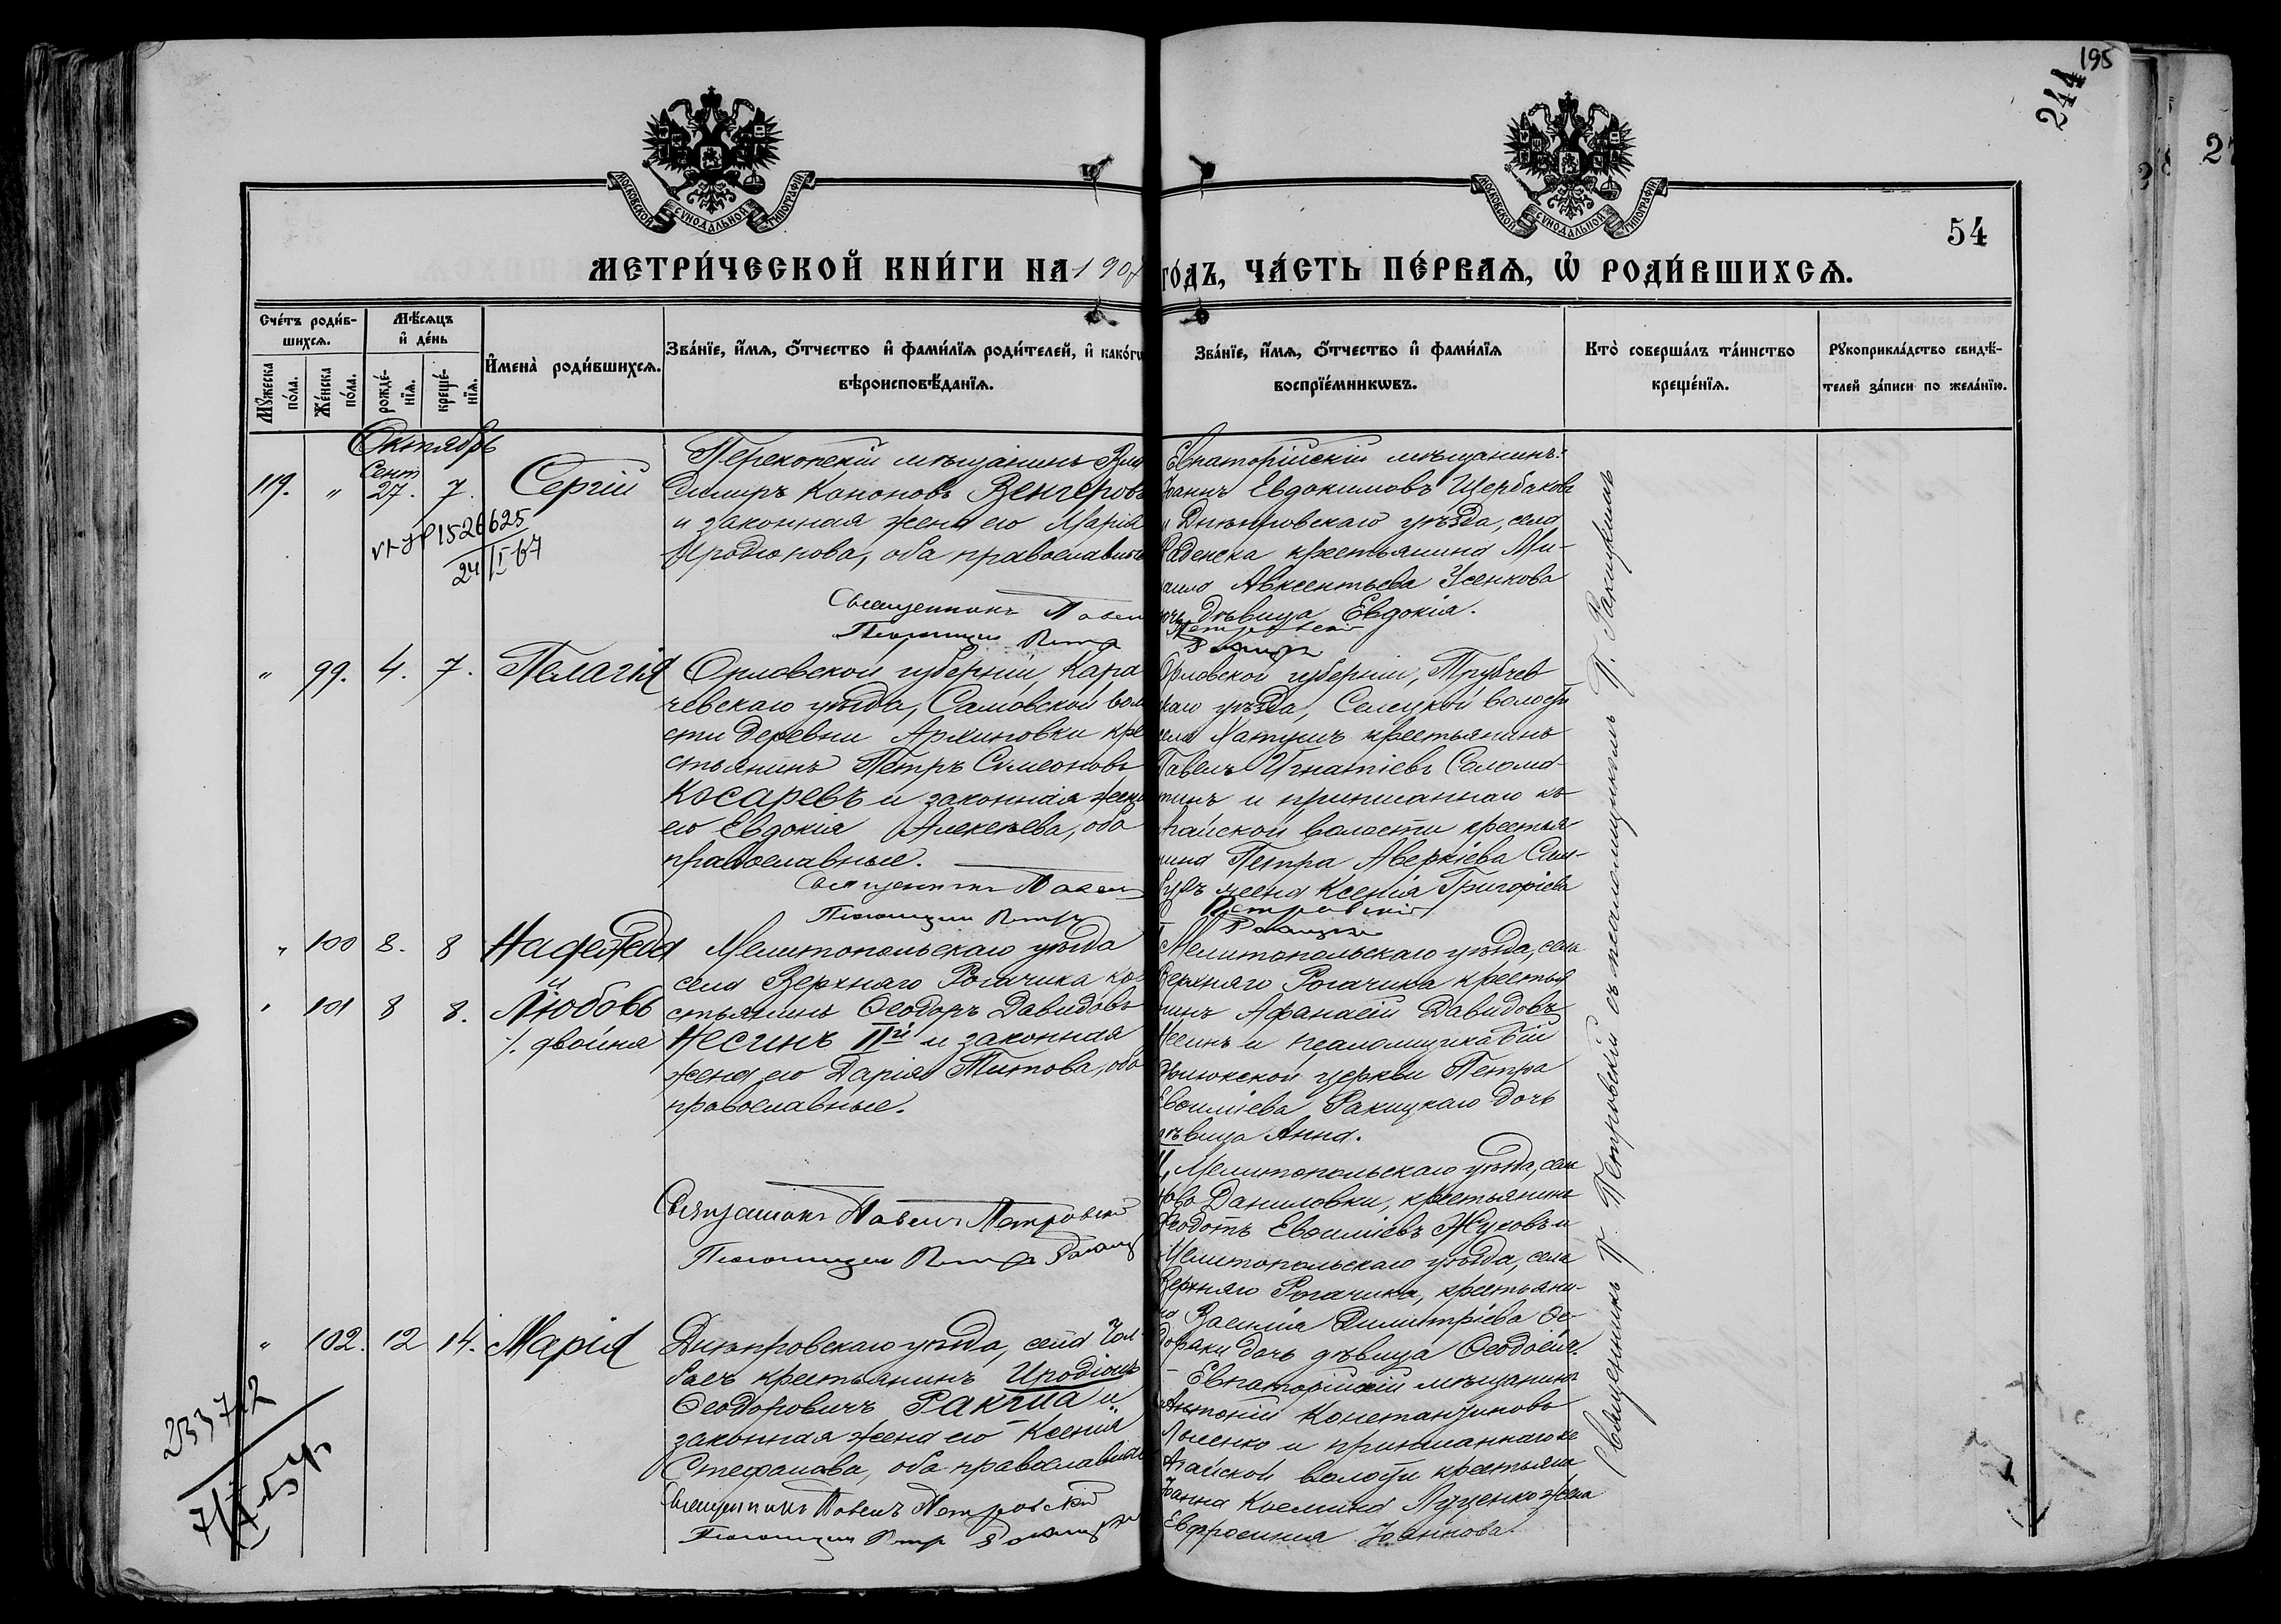 195
244
54
МОСКОВСКОЙ СѴНОДАЛЬНОЙ ТИПОГРАФІИ
МОСКОВСКОЙ СѴНОДАЛЬНОЙ ТИПОГРАФІИ
МЕТРИ́ЧЕСКОЙ КНИ́ГИ НА 190
ГО́ДЪ, ЧА́СТЬ ПЕ́РВАѦ, Ѡ҆ РОДИ́ВШИХСѦ.
Сче́тъ роди́в-
шихсѧ.
Мѣ́сѧцъ
и҆ де́нь
Мꙋ́жеска
по́ла.
Же́нска
по́ла.
рожде́-
нїѧ.
креще́-
нїѧ.
И҆мена̀ роди́вшихсѧ.
Зва́нїе, и҆́мѧ, ѻ҆́тчество и҆ фами́лїѧ роди́телей, и҆ како́гѡ
вѣроисповѣ́данїѧ.
Зва́нїе, и҆́мѧ, ѻ҆́тчество и҆ фами́лїѧ
воспрїе́мникѡвъ.
Кто̀ соверша́лъ та́инство
креще́нїѧ.
Рꙋкоприкла́дство свидѣ́-
телей за́писи по жела́нїю.
Октябрь
119. " Сент 27. 7. Сергій
Перекопскій мѣщанинъ Вла
димиръ Кононовъ Венгеровъ
и законная жена его Марія
Иродіонова, оба православные
Священникъ Павелъ
Псаломщикъ Петръ
Евпаторійскій мѣщанинъ
Іоаннъ Евдокимовъ Щербаковъ
и Днѣпровскаго уѣзда, села
Раденска крестьянина Ми-
хаила Авксентьева Усенкова
дочь дѣвица Евдокія.
Петровскій
Ракицкій
1526625
24/I-67
" 99. 4. 7. Пелагія
Орловской губерніи, Кара
чевскаго уѣзда, Самовской воло
сти деревни Архиповки кре
стьянинъ Петръ Симеоновъ
Косаревъ и законная жена
его Евдокія Алексѣева, оба
православные.
Священникъ Павелъ
Псаломщикъ Петръ
Орловской губерніи, Трубчев
скаго уѣзда, Селецкой волости
села крестьянинъ
Павелъ Игнатіевъ Солома-
тинъ и приписаннаго къ
Агайской волости крестья
нина Петра Аверкіева
жена Ксенія Григоріева
Петровскій
Ракицкій
" 100 8. 8 Надежда
и
" 101 8 8. Любовь
двойня
Мелитопольскаго уѣзда
села Верхняго Рогачика кре
стьянинъ Ѳеодоръ Давидовъ
Несинъ IIй и законная
жена его Дарія Титова, оба
православные.
Священникъ Павелъ Петровскій
Псаломщикъ Петръ Ракицкій
I Мелитопольскаго уѣзда, села
Верхняго Рогачика крестья
нинъ Афанасій Давидовъ
Несинъ и псаломщика Бій
Орлюкской церкви Петра
Евѳиміева Ракицкаго дочь
дѣвица Анна.
II, Мелитопольскаго уѣзда, села
Ново Даниловки, крестьянинъ
Ѳеодотъ Евѳиміевъ Жуковъ и
Мелитопольскаго уѣзда, села
Верхняго Рогачика, крестьяни-
на Василія Димитріева Ѳе-
дораки дочь дѣвица Ѳеодосія.
" 102. 12 14. Марія
Днѣпровскаго уѣзда, села Чал-
басъ крестьянинъ Иродіонъ
Ѳеодоровичъ Ракша и
законная жена его Ксенія
Стефанова, оба православные
Священникъ Павелъ Петровскій
Псаломщикъ Петръ Ракицкій
Евпаторійскій мѣщанинъ
Антоній Константиновъ
и приписаннаго къ
Агайской волости крестьяни
Іоанна Косьмина Луценко жена
Евфросинія Іоаннова.
Священникъ П. Петровскій съ псаломщикомъ П. Ракицкимъ
233712